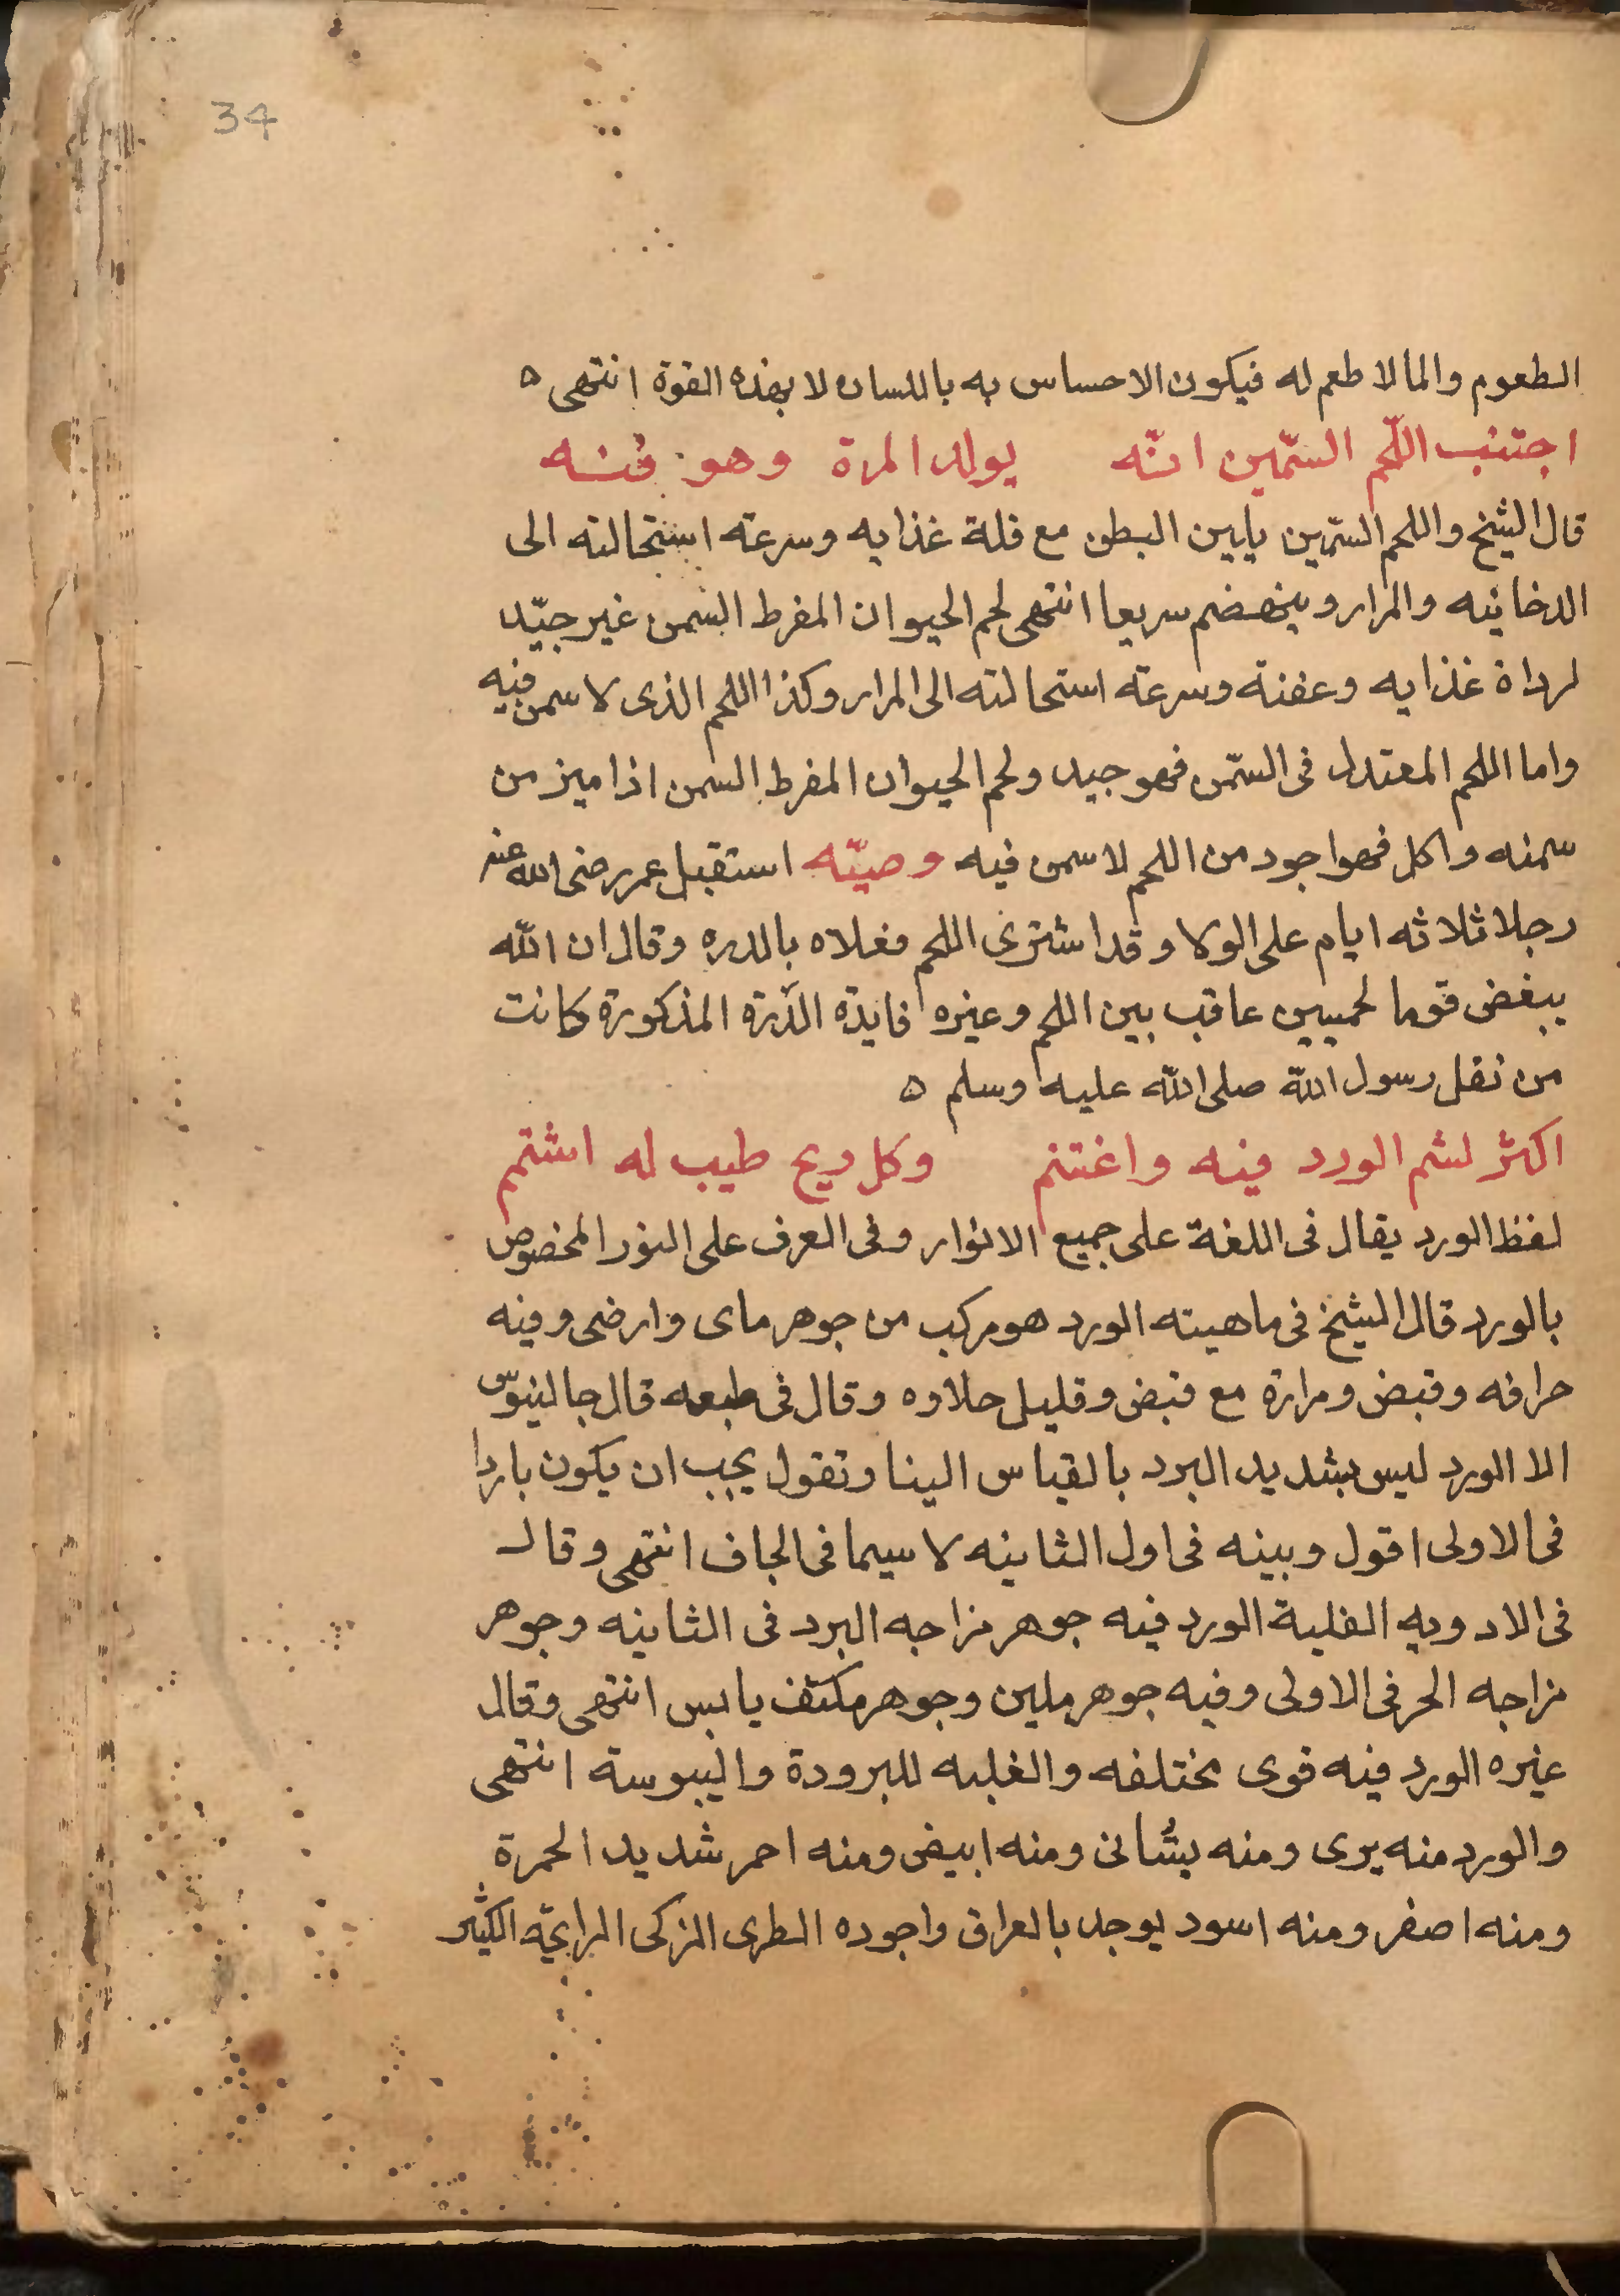 34
الطعوم والما لا طعم له فيكون الاحساس به باللسان لا بهذه القوة انتهى ه
اجتنب اللّحم السّمين انّه يولد المرة وهو فنـه
قال الشيخ واللحم السّمين يلين البطن مع قلة غذايه وسرعته استحالته الى
الدخانيه والمرار وينهضم سريعا انتهى لحم الحيوان المفرط السمن غير جيّد
لرداة غذايه وعفنة وسرعته استحالته الى المرار وكذا اللحم الذى لا سمن فيه
واما اللحم المعتدل فى السّمن فهو جيد ولحم الحيوان المفرط السمن اذا ميز من
سمنه واكل فهو اجود من اللحم لا سمن فيه وصيّه استقبل عمر رضى الله عنه
رجلا ثلاثه ايام على الولا وقد اشترى اللحم فعلاه بالدره وقال ان الله
يبغض قوما لحميين عاقب بين اللحم وغيره فايدة الدّرة المذكورة كانت
من نقل رسول الله صلى الله عليه وسلم ه
اكثر لشم الورد فيه واغتنم وكل ريح طيب له اشتم
لفظ الورد يقال فى اللغة على جميع الانوار وفى العرف على النور المخصوص
بالورد قال الشيخ فى ماهيته الورد هو مركب من جوهر ماى وارضى وفيه
حرافه وقبض ومرارة مع قبض وقليل حلاوه وقال فى طبعه قال جالينوس
الا الورد ليس بشديد البرد بالقياس الينا ونقول يجب ان يكون باردا
فى الاولى اقول ويبنه فى اول الثانيه لا سيما فى الجاف انتهى وقال
فى الادويه القلبية الورد فيه جوهر مزاجه البرد فى الثانيه وجوهر
مزاجه الحر فى الاولى وفيه جوهر ملين وجوهر مكثف يابس انتهى وقال
غيره الورد فيه قوى مختلفه والغلبه للبرودة واليبوسة انتهى
والورد منه برى ومنه بستانى ومنه ابيض ومنه احمر شديد الحمرة
ومنه اصفر ومنه اسود يوجد بالعراق واجوده الطرى الزكى الرايحة الكثير